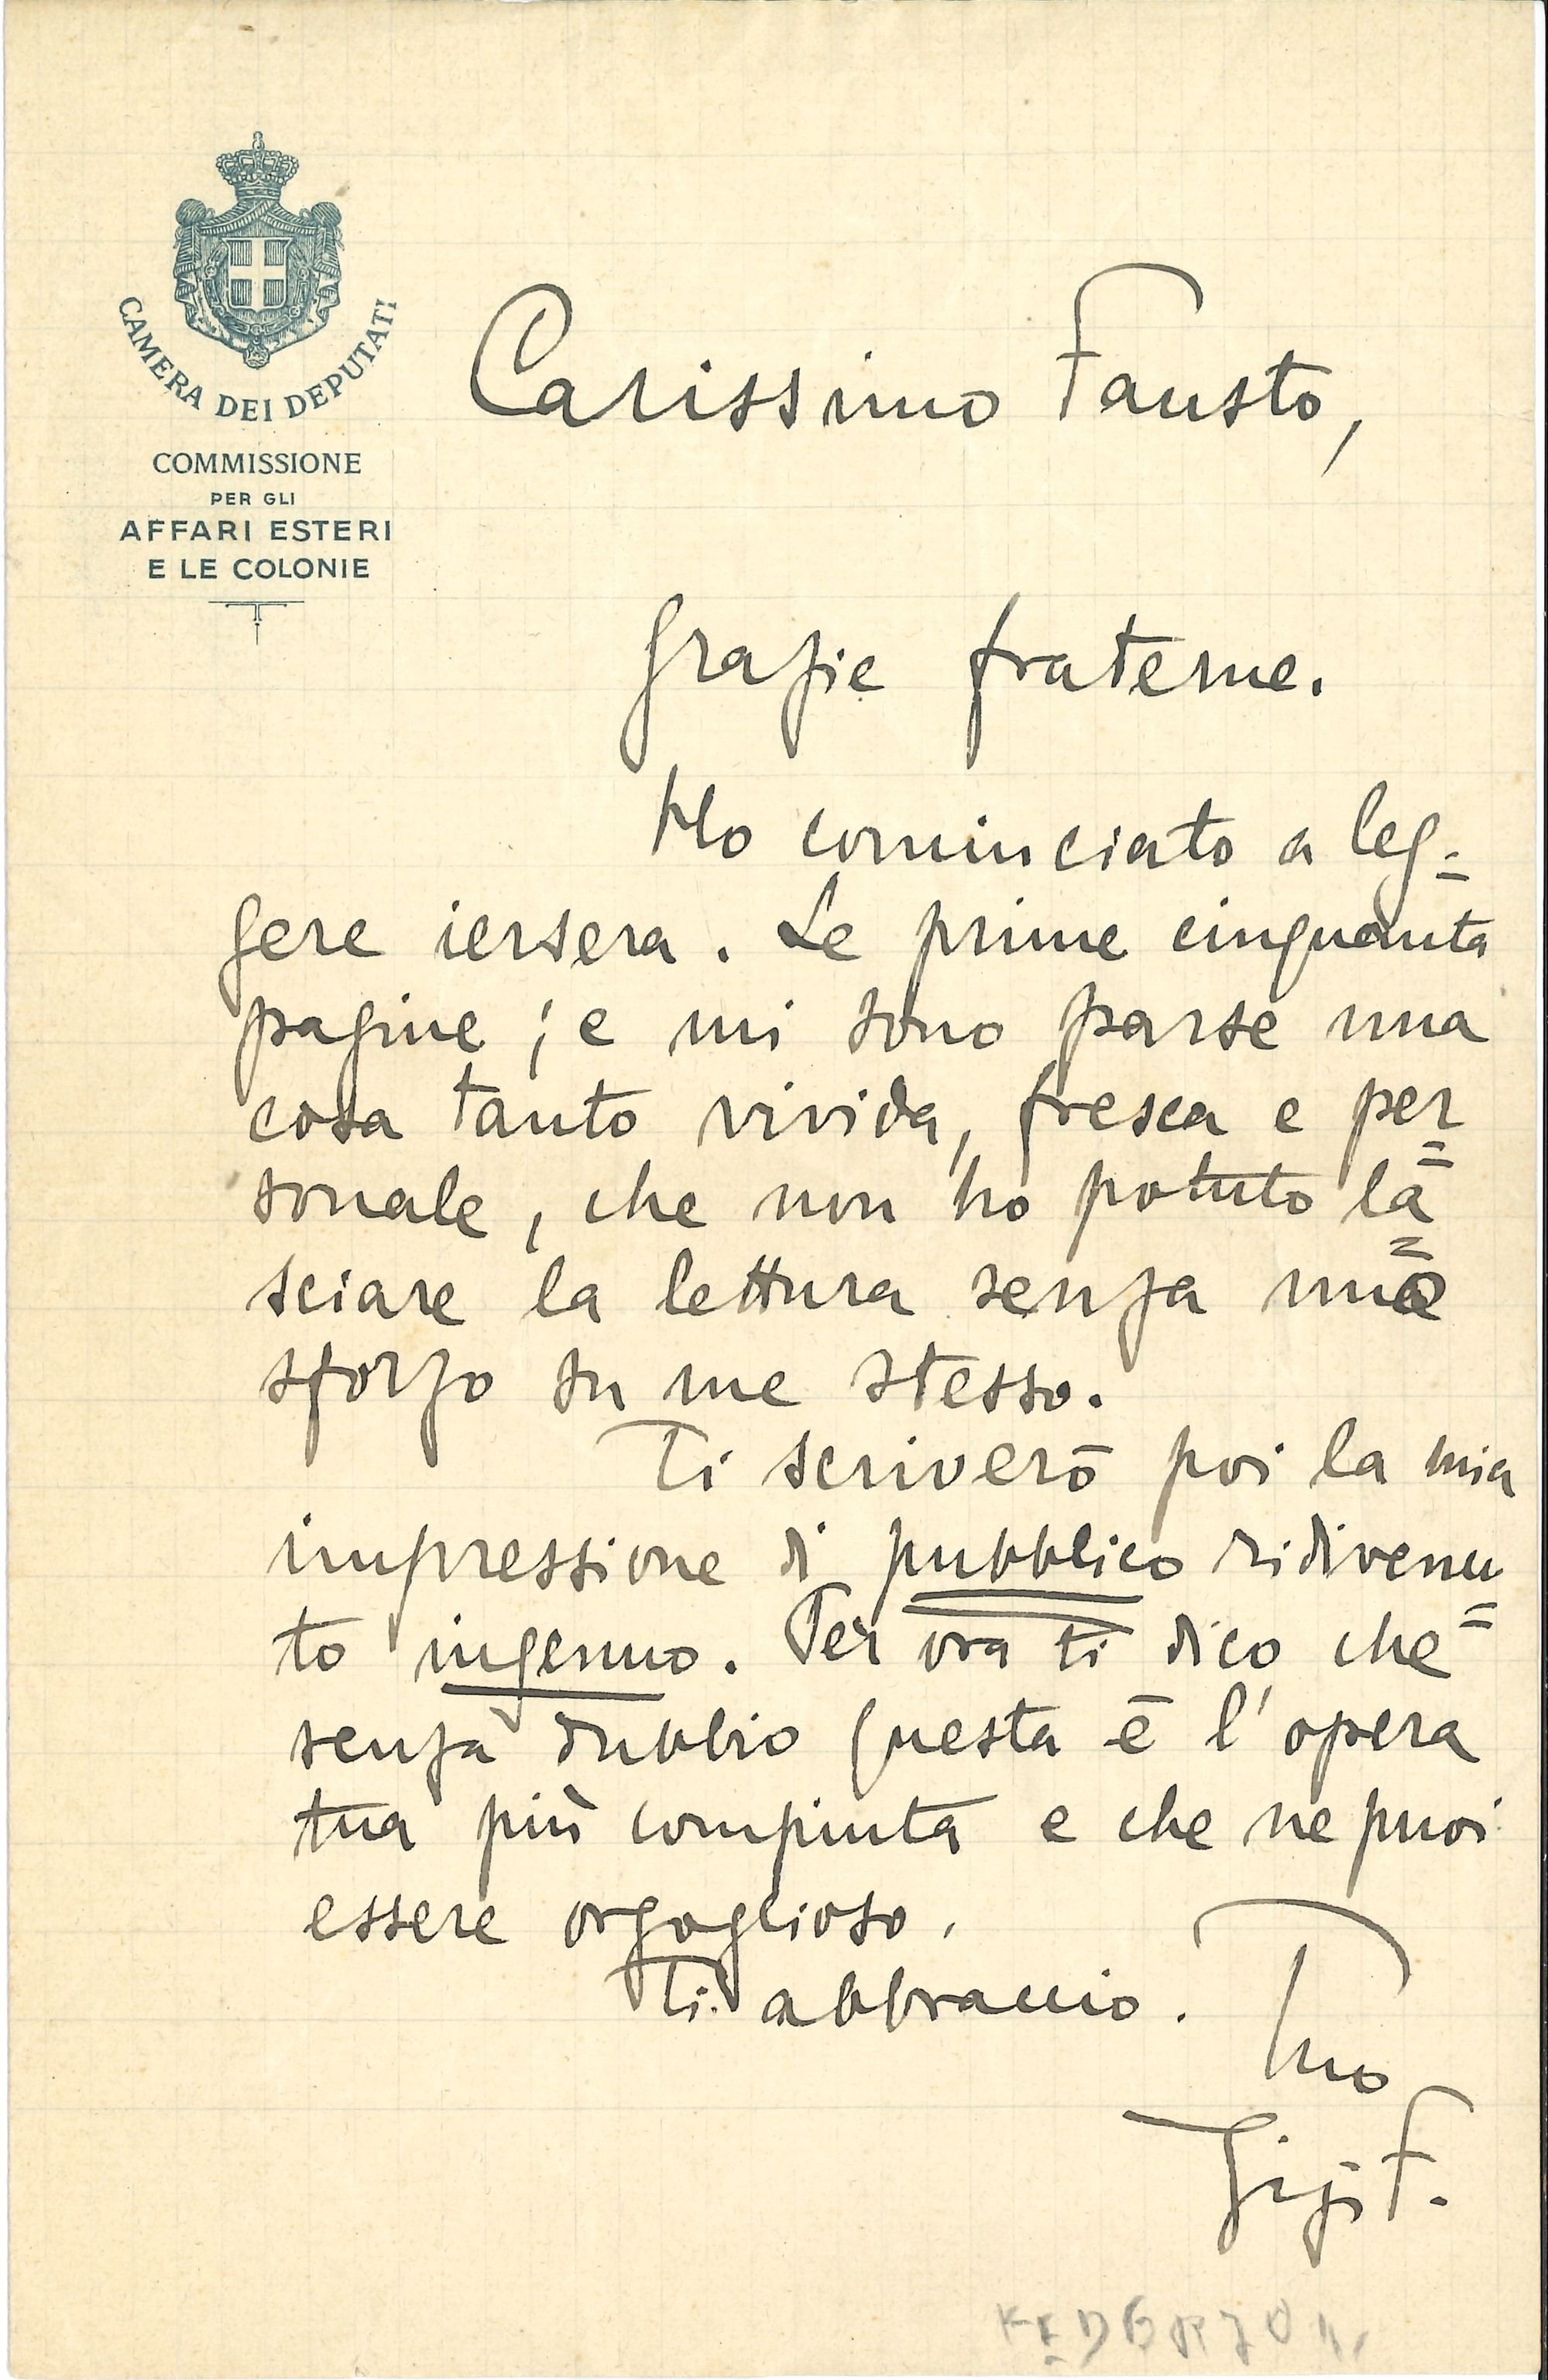 CAMERA DEI DEPUTATI
COMMISSIONE
PER GLI
AFFARI ESTERI
E LE COLONIE
Carissimo Fausto,
Grazie fraterne.
Ho cominciato a leg-
gere iersera. Le prime cinquanta
pagine; e mi sono parse una
cosa tanto vivida, fresca e per=
sonale, che non ho potuto la=
sciare la lettura senza uno
sforzo su me stesso.
Ti scriverò poi la mia
impressione di pubblico ridivenu=
to ingenuo. Per ora ti dico che
senza dubbio questa è l'opera
tua più compiuta e che ne puoi
essere orgoglioso.
Ti abbraccio.
Tuo
Gigi F.